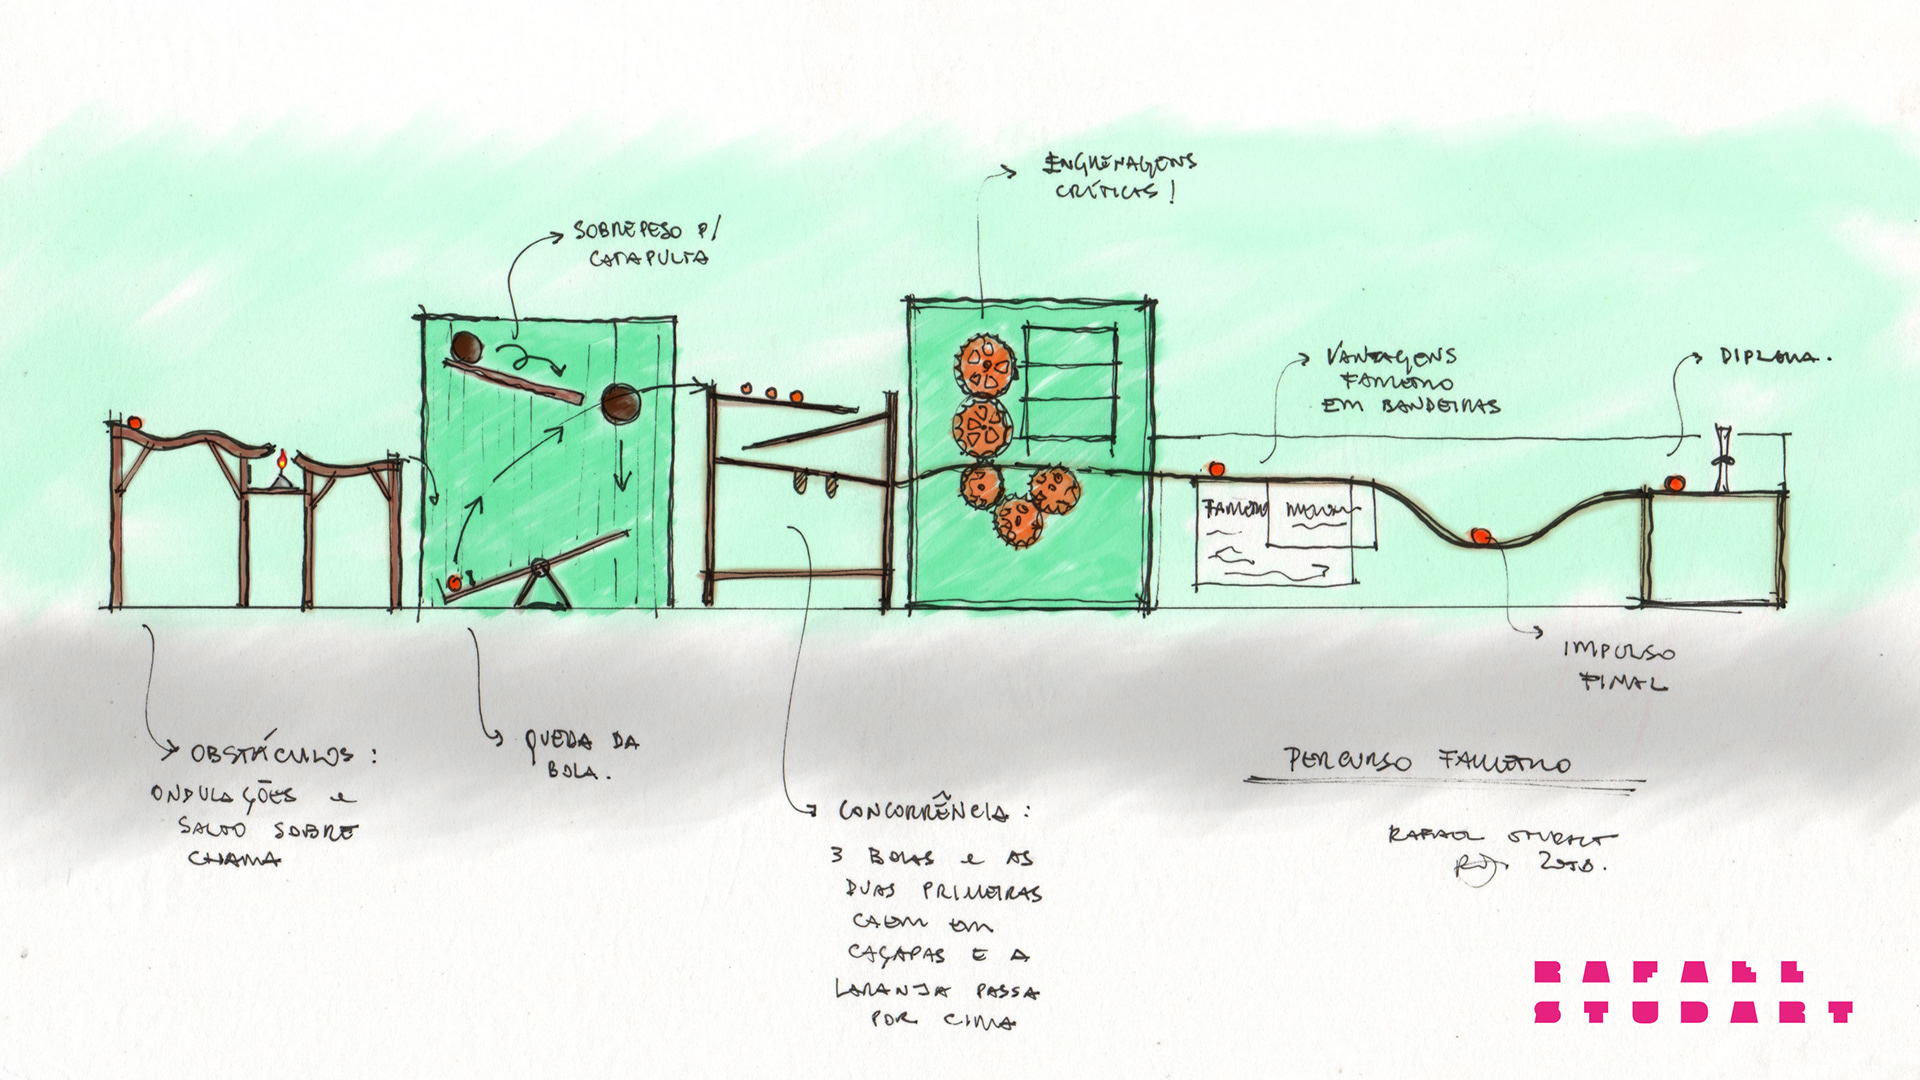 ENGRENAGENS
CRÍTICAS!
SOBREPESO P/
CATAPULTA
VANTAGENS
FAMETRO
EM BANDEIRAS
DIPLOMA.
FAMETRO
IMPULSO
FINAL
OBSTÁCULOS:
ONDULAÇÕES e
SALTO SOBRE
CHAMA
QUEDA DA
BOLA.
CONCORRÊNCIA:
3 BOLAS e AS
DUAS PRIMEIRAS
CAEM EM
CAÇAPAS E A
LARANJA PASSA
POR CIMA
PERCURSO FAMETRO
RAFAEL STUDART
RAFAEL
STUDART